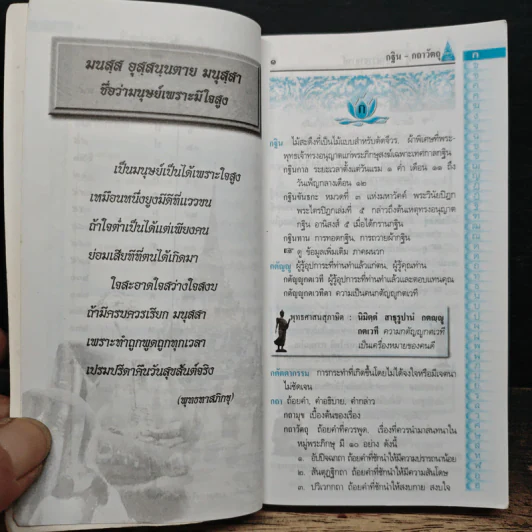 มนสฺส อุสฺสนฺนตาย มนุสฺสา
ชื่อว่ามนุษย์เพราะมีใจสูง
เป็นมนุษย์เป็นได้เพราะใจสูง
เหมือนหนึ่งยูงมีดีที่แววขน
ถ้าใจต่ำเป็นได้แต่เพียงคน
ย่อมเสียทีที่ตนได้เกิดมา
ใจสะอาดใจสว่างใจสงบ
ถ้ามีครบควรเรียก มนุสสา
เพราะทำถูกพูดถูกทุกเวลา
เปรมปรีดาคืนวันสุขสันต์จริง
(พุทธทาสภิกขุ)
๑
กฐิน - กถาวัตถุ
ก
ก
กฐิน ไม้สะดึงที่เป็นไม้แบบสำหรับตัดจีวร, ผ้าพิเศษที่พระ-
พุทธเจ้าทรงอนุญาตแก่พระภิกษุสงฆ์เฉพาะเทศกาลกฐิน
กฐินกาล ระยะเวลาตั้งแต่วันแรม ๑ ค่ำ เดือน ๑๑ ถึง
วันเพ็ญกลางเดือน ๑๒
กฐินขันธกะ หมวดที่ ๗ แห่งมหาวัคค์ พระวินัยปิฎก
พระไตรปิฎกเล่มที่ ๕ กล่าวถึงต้นเหตุทรงอนุญาต
กฐิน อานิสงส์ ๕ เมื่อได้กรานกฐิน
กฐินทาน การทอดกฐิน, การถวายผ้ากฐิน
ดู ข้อมูลเพิ่มเติม ภาคผนวก
กตัญญู ผู้รู้อุปการะที่ท่านทำแล้วแก่ตน, ผู้รู้คุณท่าน
กตัญญูกตเวที ผู้รู้อุปการะที่ท่านทำแล้วและตอบแทนคุณ
กตัญญูกตเวทิตา ความเป็นคนกตัญญูกตเวที
พุทธศาสนสุภาษิต : นิมิตฺตํ สาธุรูปานํ กตญฺญู
กตเวที ความกตัญญูกตเวที
เป็นเครื่องหมายของคนดี
กตัตตากรรม การกระทำที่เกิดขึ้นโดยไม่ได้จงใจหรือมีเจตนา
ไม่ชัดเจน
กถา ถ้อยคำ, คำอธิบาย, คำกล่าว
กถามุข เบื้องต้นของเรื่อง
กถาวัตถุ ถ้อยคำที่ควรพูด, เรื่องที่ควรนำมาสนทนาใน
หมู่พระภิกษุ มี ๑๐ อย่าง ดังนี้
๑. อัปปิจฉกถา ถ้อยคำที่ชักนำให้มีความปรารถนาน้อย
๒. สันตุฏฐิกถา ถ้อยคำที่ชักนำให้มีความสันโดษ
๓. ปวิเวกกถา ถ้อยคำที่ชักนำให้สงบกาย สงบใจ